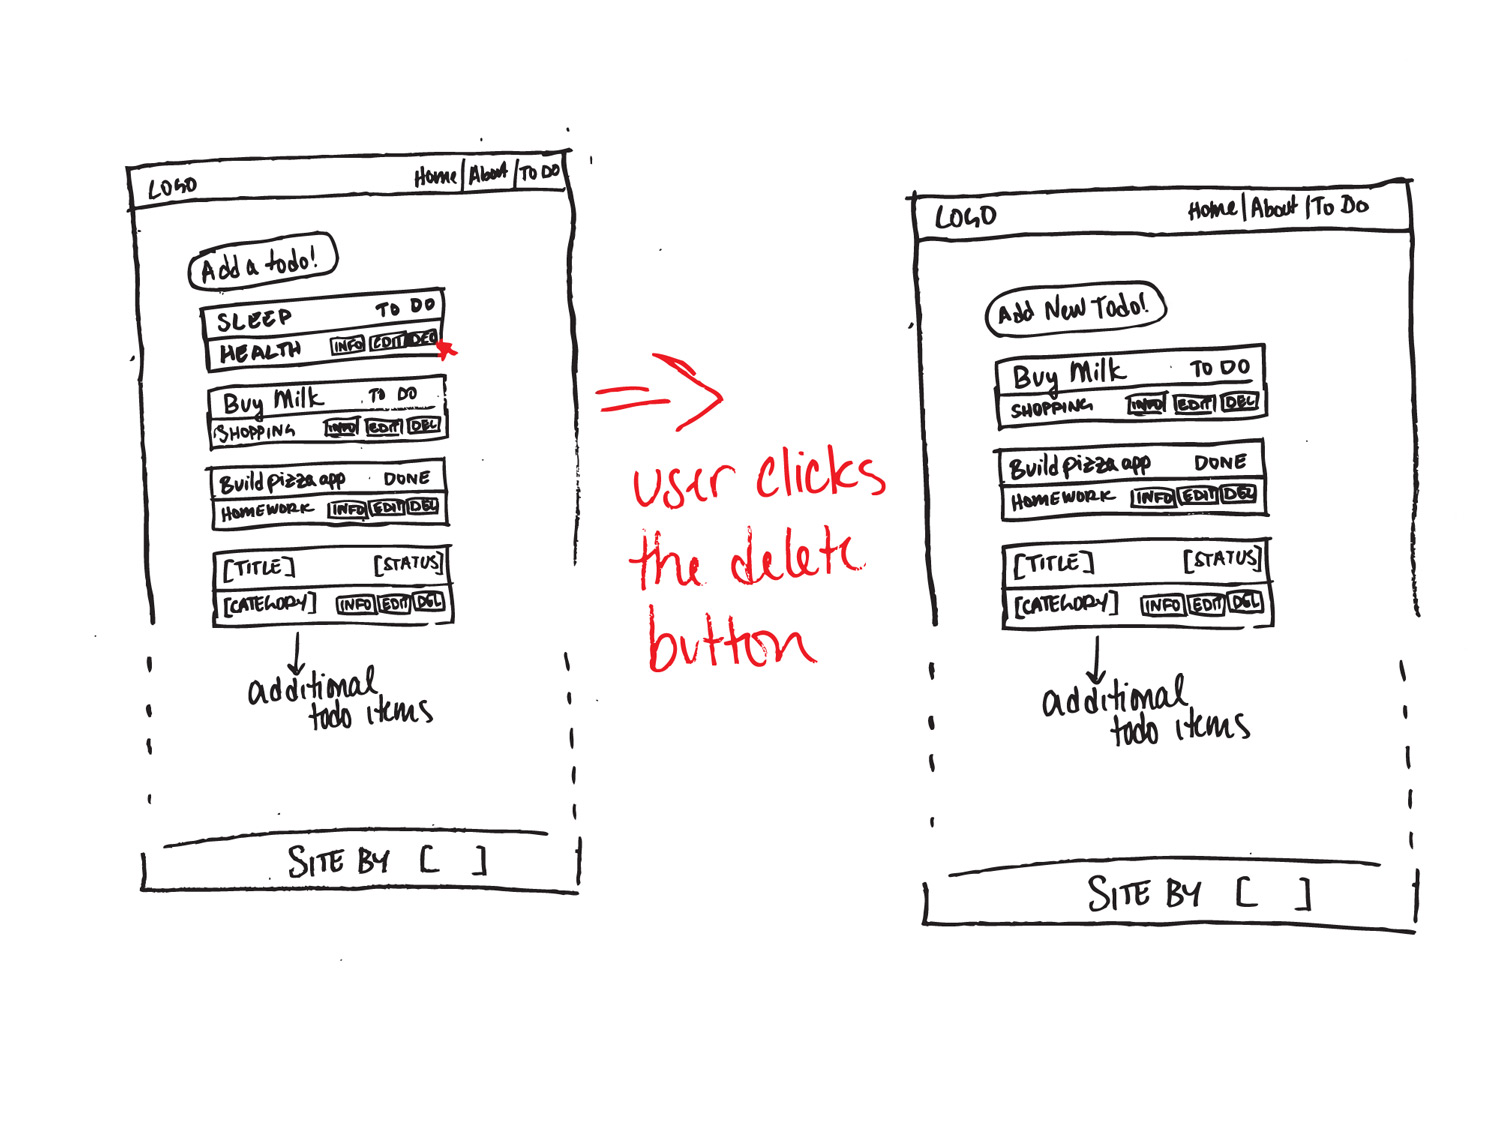 LOGO
Home | About | To Do
Add a todo!
SLEEP TO DO
HEALTH INFO EDIT DEL
Buy Milk TO DO
SHOPPING INFO EDIT DEL
Build pizza app DONE
HOMEWORK INFO EDIT DEL
[TITLE] [STATUS]
[CATEGORY] INFO EDIT DEL
additional
todo items
SITE BY [ ]
user clicks
the delete
button
LOGO
Home | About | To Do
Add New Todo!
Buy Milk TO DO
SHOPPING INFO EDIT DEL
Build pizza app DONE
HOMEWORK INFO EDIT DEL
[TITLE] [STATUS]
[CATEGORY] INFO EDIT DEL
additional
todo items
SITE BY [ ]